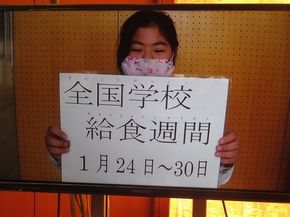 全国学校
給食週間
1月24日~30日